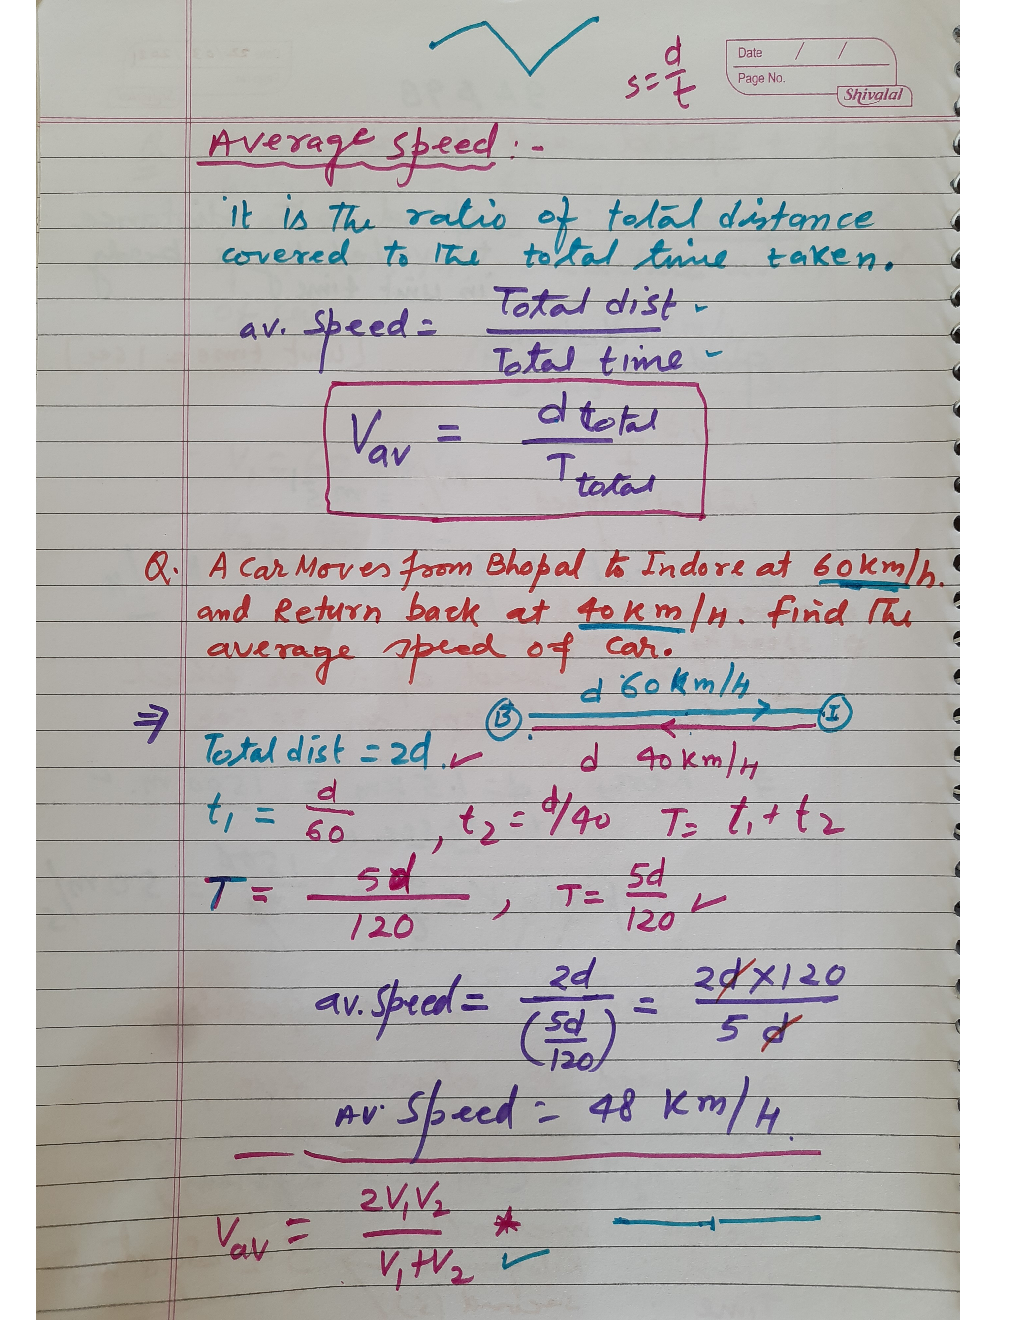 s = d/t
Date / /
Page No.
Shivalal
Average speed :-
it is the ratio of total distance
covered to the total time taken.
av. speed = Total dist / Total time
Vav = d total / T total
Q. A car Moves from Bhopal to Indore at 60 km/h.
and Return back at 40 km/H. find the
average speed of car.
d 60 km/H
B I
⇒ Total dist = 2d. ✓ d 40 km/H
t₁ = d/60 , t₂ = d/40 T = t₁ + t₂
T = 5d/120 , T = 5d/120 ✓
av. speed = 2d/(5d/120) = 2d×120/5d
Av. Speed = 48 Km/H.
Vav = 2V₁V₂/V₁+V₂ * ✓